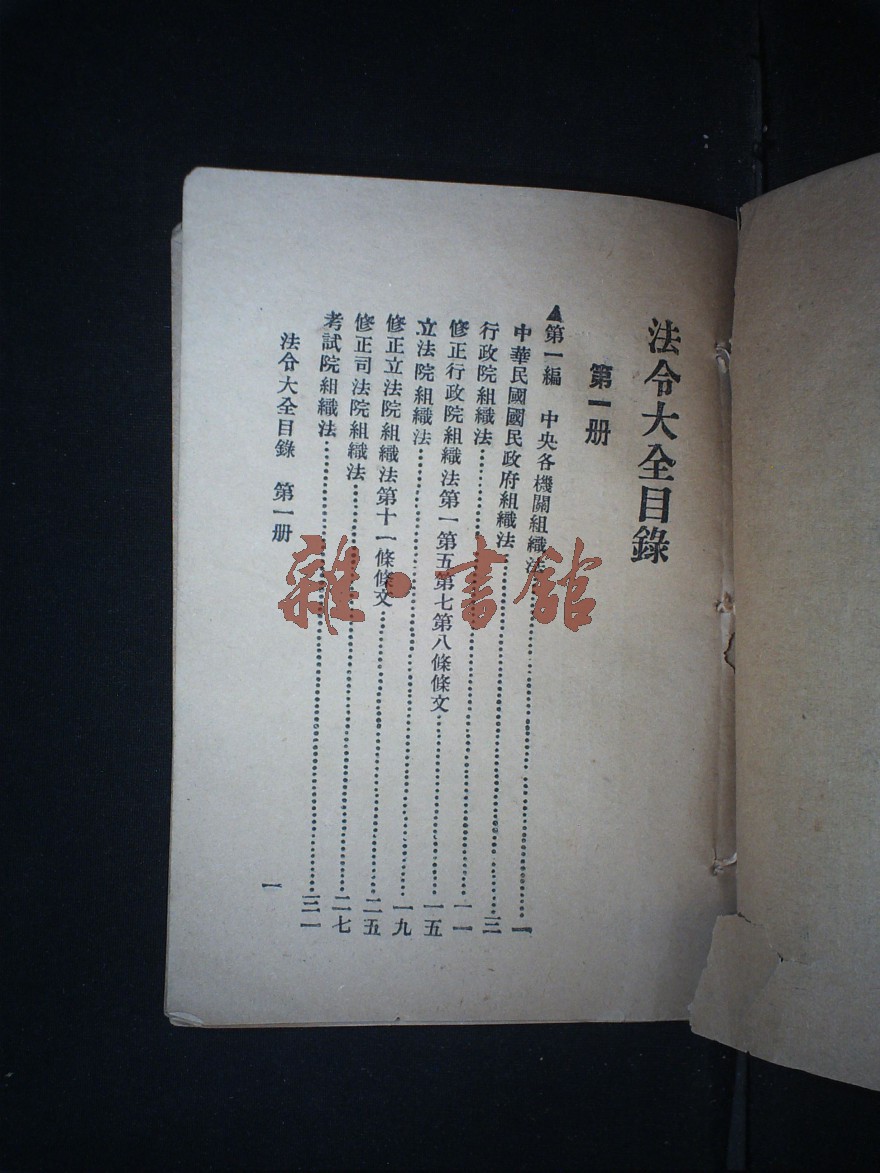 法令大全目錄
第一册
▲第一編 中央各機關組織法……一
中華民國國民政府組織法……三
行政院組織法……一一
修正行政院組織法第一第五第七第八條條文……一五
立法院組織法……一九
修正立法院組織法第十一條條文……二五
修正司法院組織法……二七
考試院組織法……三一
法令大全目錄 第一册 一
雜·書館